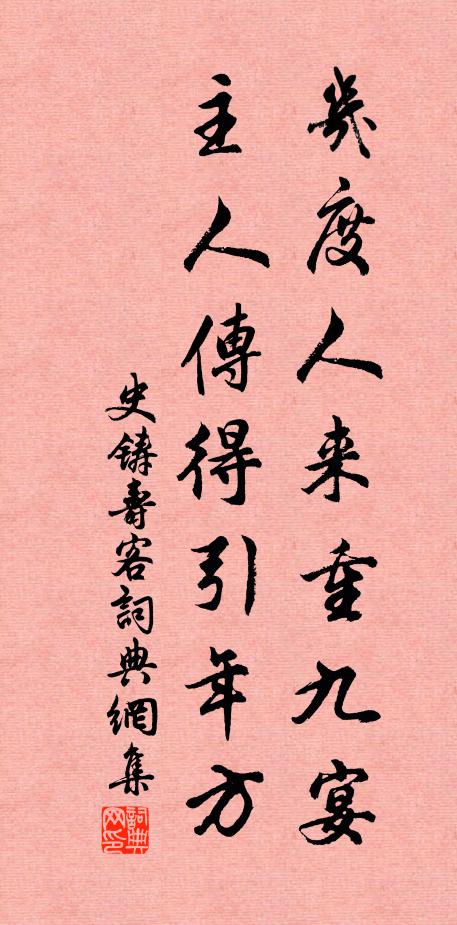 幾度人来重九宴
主人傳得引年方
史鑄壽客詞典網集
詞典网印